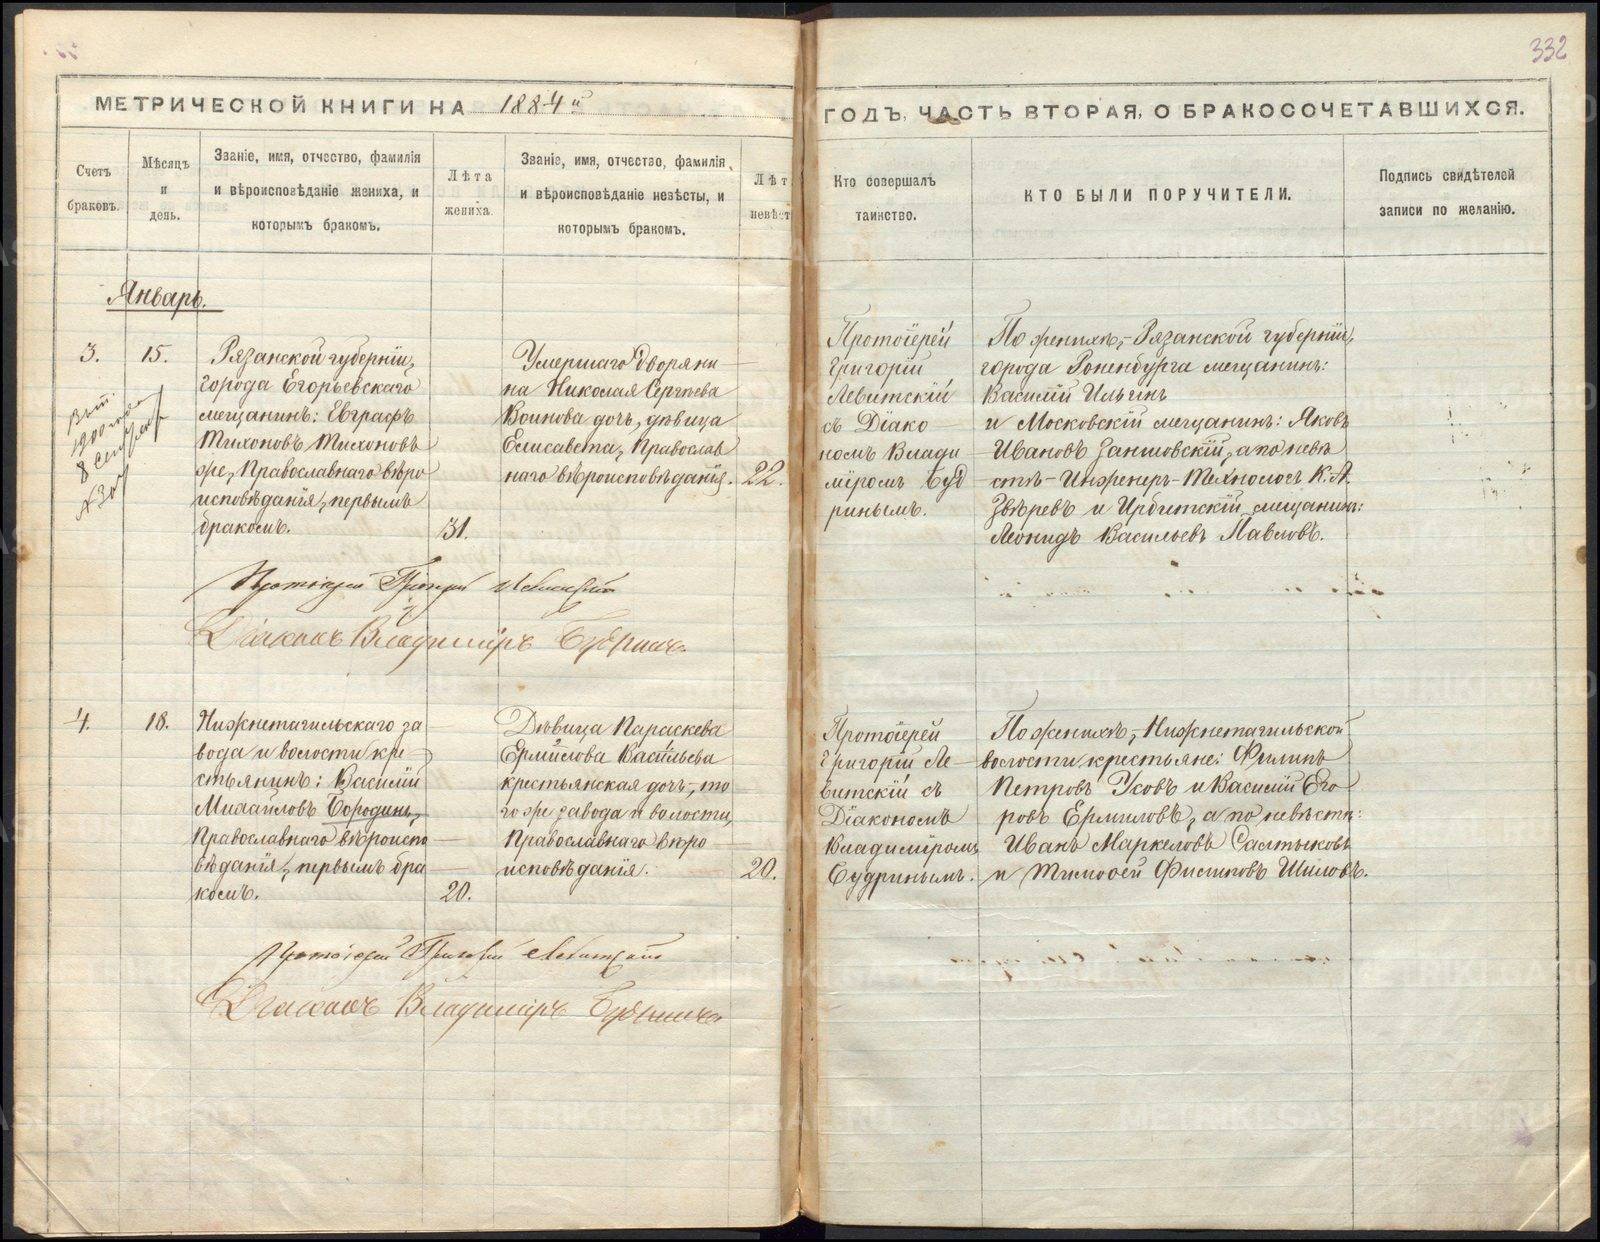 332
МЕТРИЧЕСКОЙ КНИГИ НА 1884 й
ГОДЪ, ЧАСТЬ ВТОРАЯ, О БРАКОСОЧЕТАВШИХСЯ.
Счетъ
браковъ.
Мѣсяцъ
и
день.
Званіе, имя, отчество, фамилія
и вѣроисповѣданіе жениха, и
которымъ бракомъ.
Лѣта
жениха.
Званіе, имя, отчество, фамилія,
и вѣроисповѣданіе невѣсты, и
которымъ бракомъ.
Лѣт
невѣст
Кто совершалъ
таинство.
КТО БЫЛИ ПОРУЧИТЕЛИ.
Подпись свидѣтелей
записи по желанію.
Январь.
3.
15.
Рязанской губерніи,
города Егорьевскаго
мещанинъ: Евграфъ
Тихоновъ Тихоновъ
же, Православнаго вѣро
исповѣданія, первымъ
бракомъ.
31.
Умершаго Дворяни
на Николая Сергѣева
Воинова дочь, дѣвица
Елисавета, Православ
наго вѣроисповѣданія.
22.
Протоіерей
Григорій
Левитскій
съ Діако
номъ Влади
міромъ Буд
ринымъ.
По женихѣ,- Рязанской губерніи,
города Раненбурга мещанинъ:
Василій Ильинъ
и Московскій мещанинъ: Яковъ
Ивановъ , а по невѣ
стѣ - Инженеръ-Технологъ К. А.
Звѣревъ и Ирбитскій мещанинъ:
Леонидъ Васильевъ Павловъ.
Выт.
1900 года
8 сентября
Протоіерей Григорій Левитскій
Діаконъ Владиміръ Будринъ.
4.
18.
Нижнетагильскаго за
вода и волости кре
стьянинъ: Василій
Михайловъ Бородинъ,
Православнаго вѣроиспо
вѣданія, первымъ бра
комъ.
20.
Дѣвица Параскева
Ермилова Васильева
крестьянская дочь, то
го же завода и волости,
Православнаго вѣро
исповѣданія.
20.
Протоіерей
Григорій Ле
витскій съ
Діакономъ
Владиміромъ
Будринымъ.
По женихѣ,- Нижнетагильской
волости крестьяне: Филипъ
Петровъ Усовъ и Василій Его
ровъ Ермиловъ, а по невѣстѣ:
Иванъ Маркеловъ Салтыковъ
и Тимоѳей Филиповъ Шиловъ.
Протоіерей Григорій Левитскій
Діаконъ Владиміръ Будринъ
METRIKI.GASO-URAL.RU